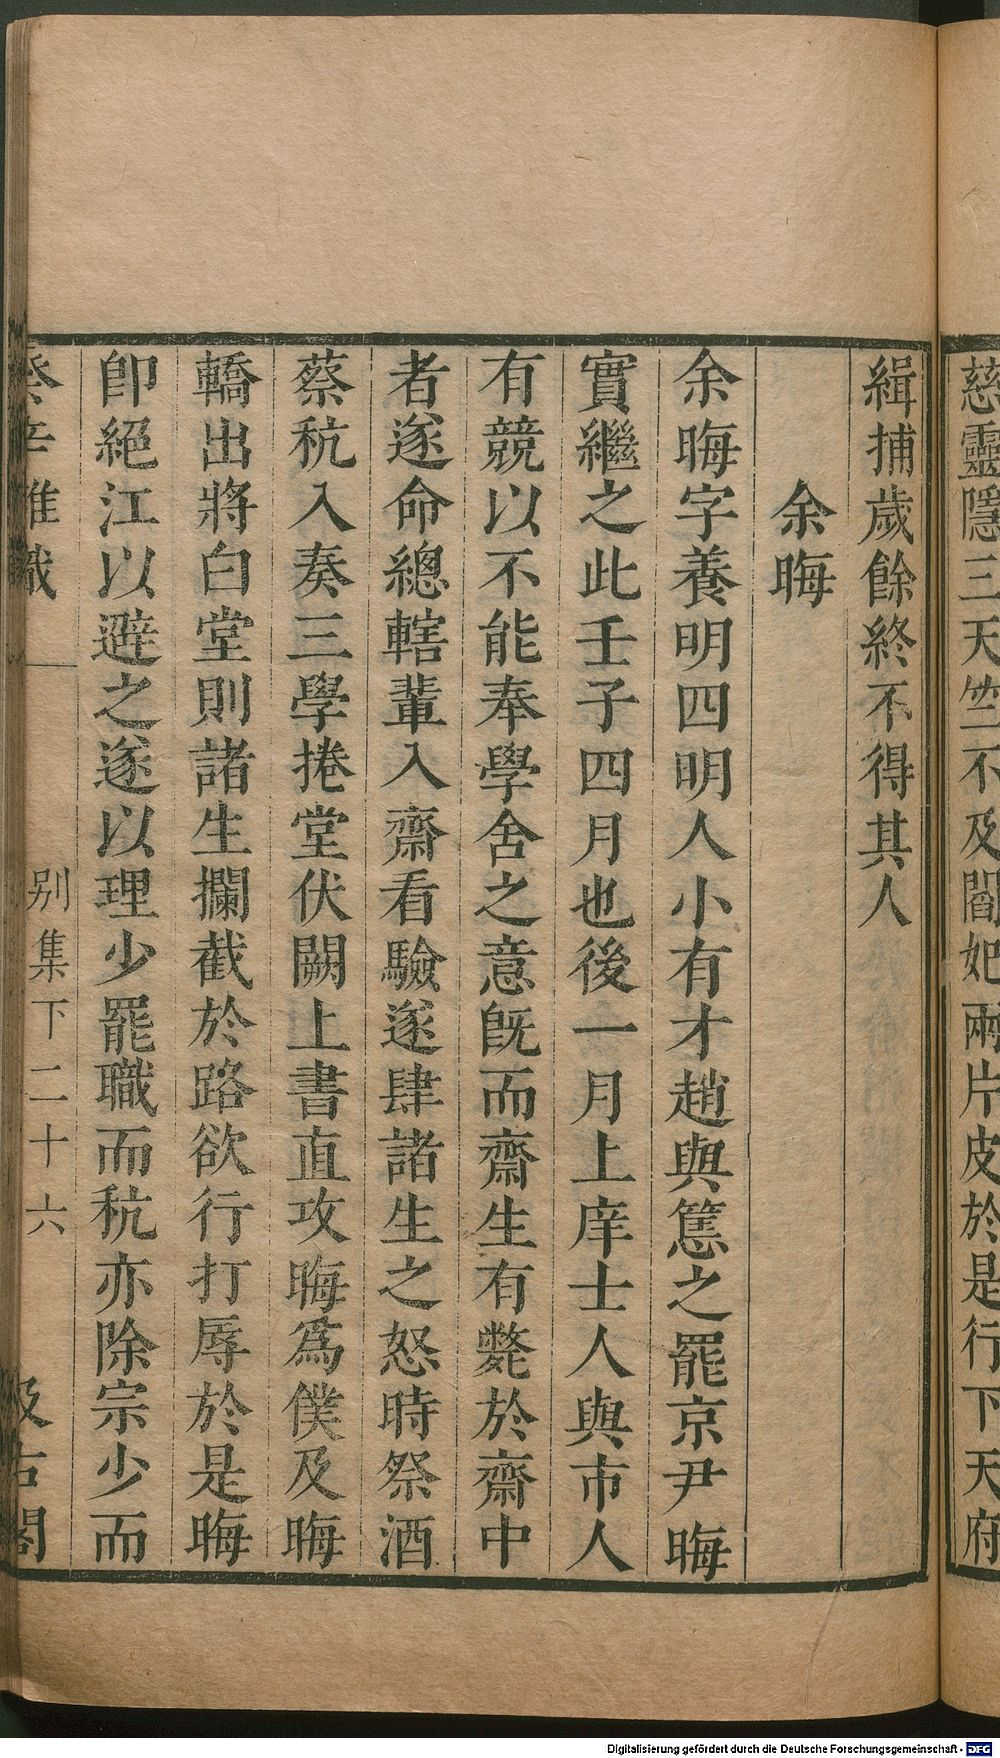 慈靈隱三天竺不及閻妃兩片皮於是行下天府
緝捕歲餘終不得其人
余晦
余晦字養明四明人小有才趙與𥲅之罷京尹晦
實繼之此壬子四月也後一月上庠士人與市人
有競以不能奉學舍之意旣而齋生有斃於齋中
者遂命總轄輩入齋看驗遂肆諸生之怒時祭酒
蔡秔入奏三學捲堂伏闕上書直攻晦爲僕及晦
轎出將白堂則諸生攔截於路欲行打辱於是晦
卽絕江以避之遂以理少罷職而秔亦除宗少而
癸辛雜識
別集下
二十六
汲古閣
Digitalisierung gefördert durch die Deutsche Forschungsgemeinschaft - DFG